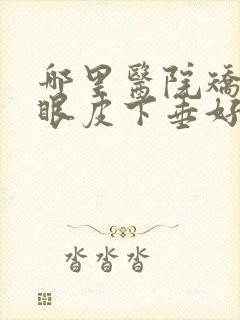 哪里醫院矯
眼皮下垂好
沓沓沓